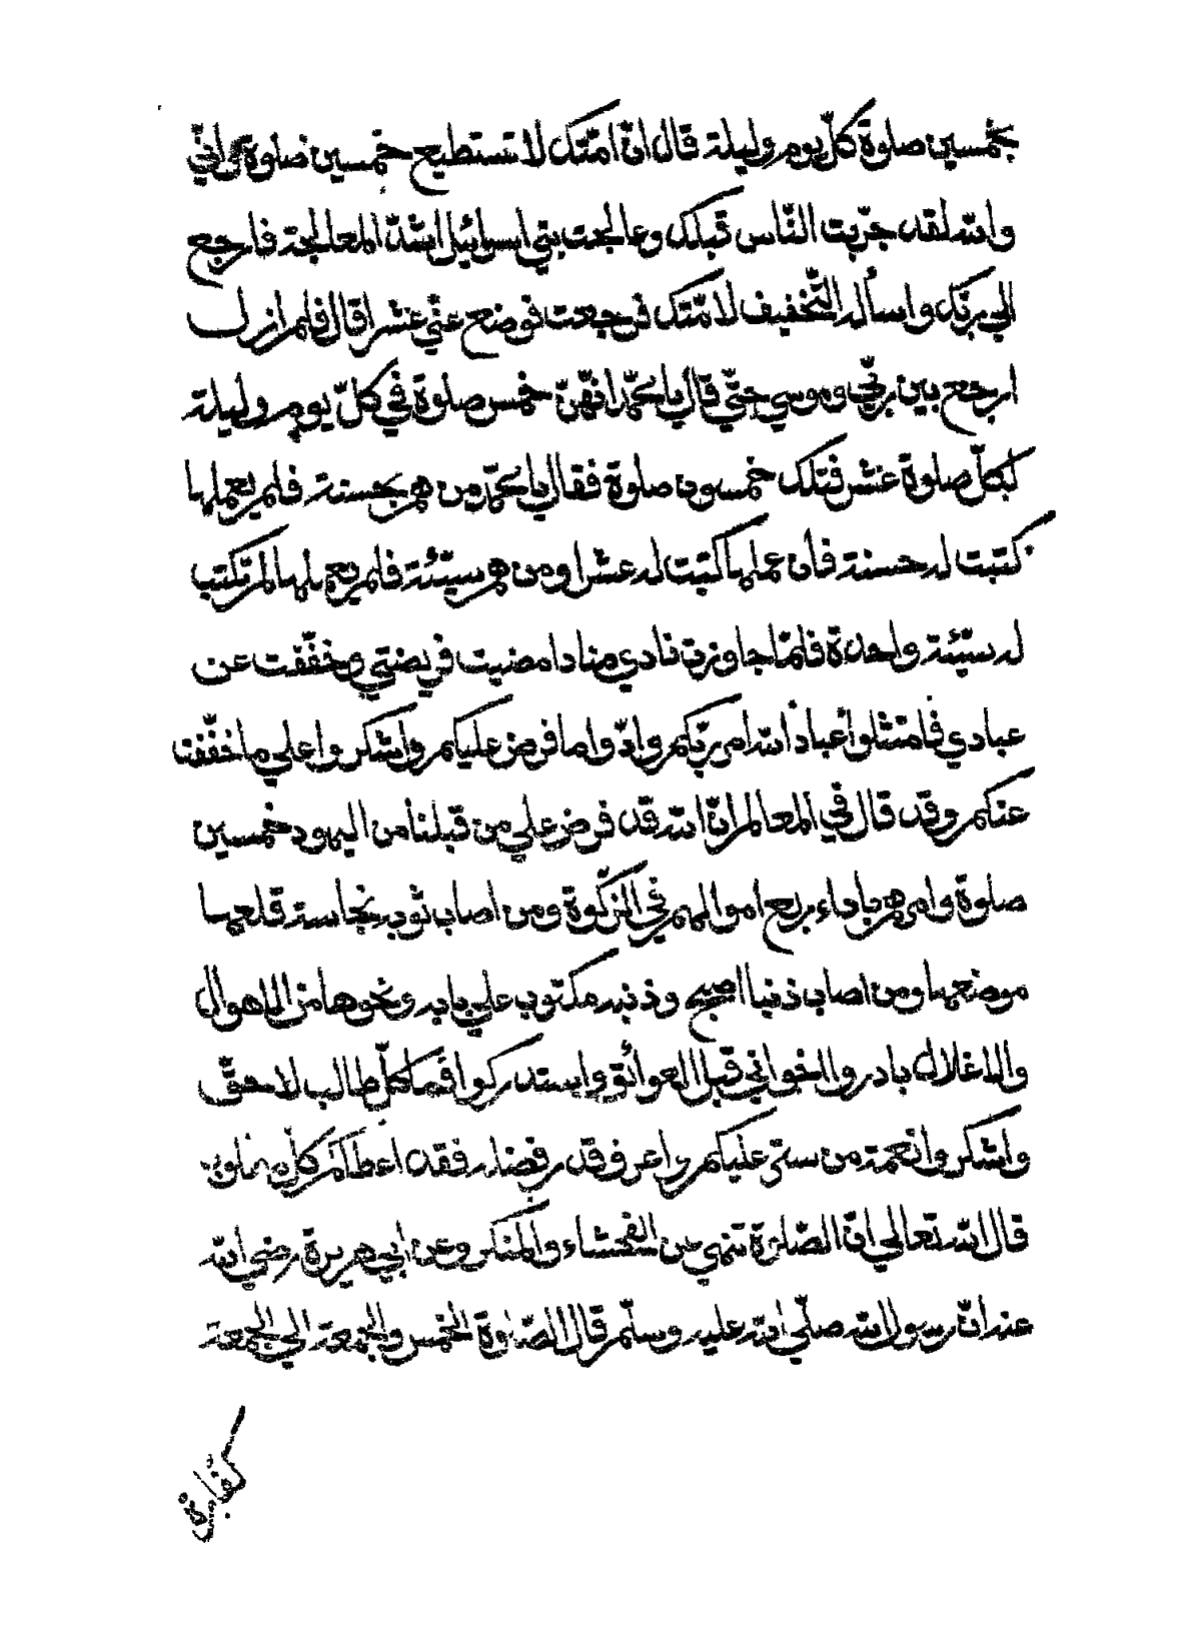 بخمسين صلوة كلّ يوم وليلة قال انّ امّتك لا تستطيع خمسين صلوة وانّي
والله لقد جرّبت النّاس قبلك وعالجت بني اسرائيل اشدّ المعالجة فارجع
الي ربّك واسأله التّخفيف لامّتك فرجعت فوضع عنّي عشرا قال فلم ازل
ارجع بين ربّي وموسي حتّي قال يا محمّد انّهنّ خمس صلوة في كلّ يوم وليلة
لكلّ صلوة عشر فتلك خمسون صلوة فقال يا محمّد من هم بحسنة فلم يعملها
كتبت له حسنة فان عملها كتبت له عشرا ومن هم بسيّئة فلم يعملها لم تكتب
له سيّئة واحدة فلمّا جاوزت نادي مناد امضيت فريضتي وخفّفت عن
عبادي فامتثلوا عباد الله امر ربّكم وادّوا ما فرض عليكم واشكروا علي ما خفّفت
عنكم وقد قال في المعالم انّ الله قد فرض علي من قبلنا من اليهود خمسين
صلوة وامرهم باداء ربع اموالهم في الزّكوة ومن اصاب ثوبه نجاسة قلعها
موضعها ومن اصاب ذنبا اصبح وذنبه مكتوب علي بابه ونحوها من الاهوال
والاغلال بادروا اخواني قبل العوائق واستدركوا فما كلّ طالب لاحقّ
واشكروا نعمة من ستر عليكم واعرفوا قدر فقد اعطاكم كلّ
قال الله تعالي انّ الصّلوة تنهي عن الفحشاء والمنكر وعن ابي هريرة رضي الله
عنه انّ رسول الله صلّي الله عليه وسلّم قال الصّلوة الخمس والجمعة الي الجمعة
كفّارة